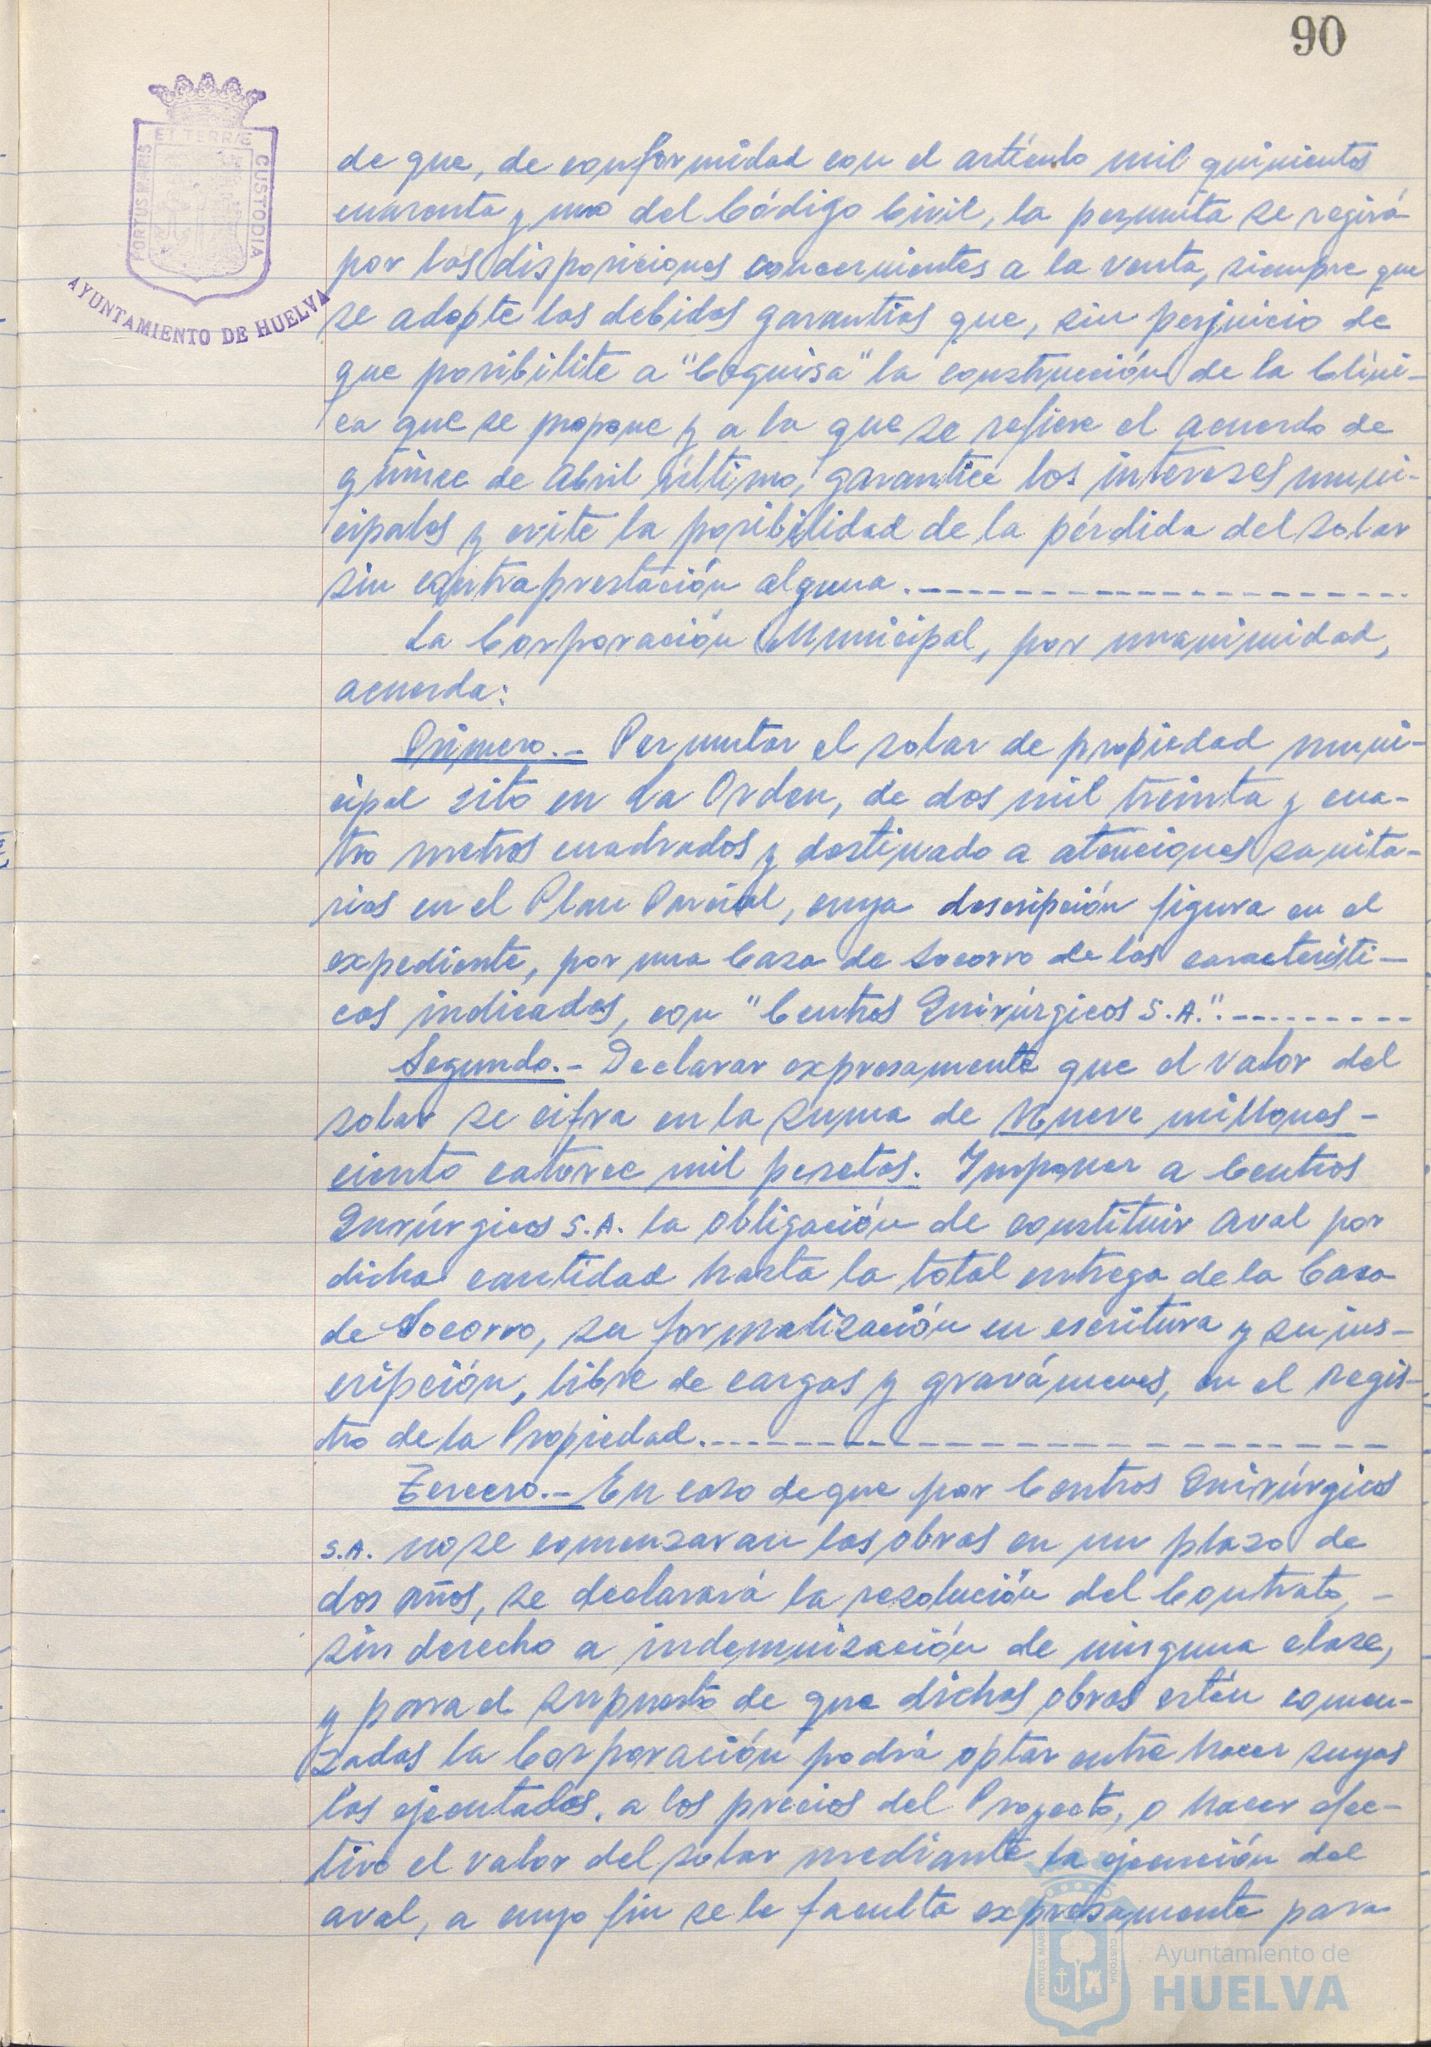 90
ET TERRÆ
PORTUS MARIS
CUSTODIA
AYUNTAMIENTO DE HUELVA
de que, de conformidad con el artículo mil quinientos
cuarenta y uno del Código Civil, la permuta se regirá
por las disposiciones concernientes a la venta, siempre que
se adopte las debidas garantías que, sin perjuicio de
que posibilite a "Cequisa" la construcción de la Clíni-
ca que se propone y a la que se refiere el acuerdo de
quince de Abril último, garantice los intereses muni-
cipales y evite la posibilidad de la pérdida del solar
sin contraprestación alguna.
La Corporación Municipal, por unanimidad,
acuerda:
Primero.- Permutar el solar de propiedad muni-
cipal sito en La Orden, de dos mil treinta y cua-
tro metros cuadrados y destinado a atenciones sanita-
rias en el Plan Parcial, cuya descripción figura en el
expediente, por una Casa de Socorro de las característi-
cas indicadas, con "Centros Quirúrgicos S.A."
Segundo.- Declarar expresamente que el valor del
solar se cifra en la suma de Nueve millones-
ciento catorce mil pesetas. Imponer a Centros
Quirúrgicos S.A. la obligación de constituir aval por
dicha cantidad hasta la total entrega de la Casa
de Socorro, su formalización en escritura y su ins-
cripción, libre de cargas y gravámenes, en el Regis-
tro de la Propiedad.
Tercero.- En caso de que por Centros Quirúrgicos
S.A. no se comenzaran las obras en un plazo de
dos años, se declarará la resolución del Contrato,-
sin derecho a indemnización de ninguna clase,
y para el supuesto de que dichas obras estén comen-
zadas la Corporación podrá optar entre hacer suyas
las ejecutadas, a los precios del Proyecto, o hacer efec-
tivo el valor del solar mediante la ejecución del
aval, a cuyo fin se le faculta expresamente para
PORTUS MARIS
CUSTODIA
Ayuntamiento de
HUELVA